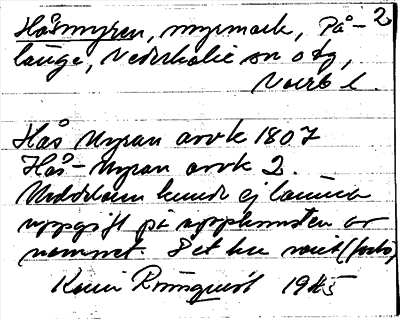 2
Håsmyren, myrmark, På-
länge, Nederkalix sn o tg,
Norrb l.
Hås Myran avvk 1807
Hås-Myran avvk 2.
kunde ej lämna
uppgift på uppkomsten av
namnet. Det har varit
Rönnqvist 1945